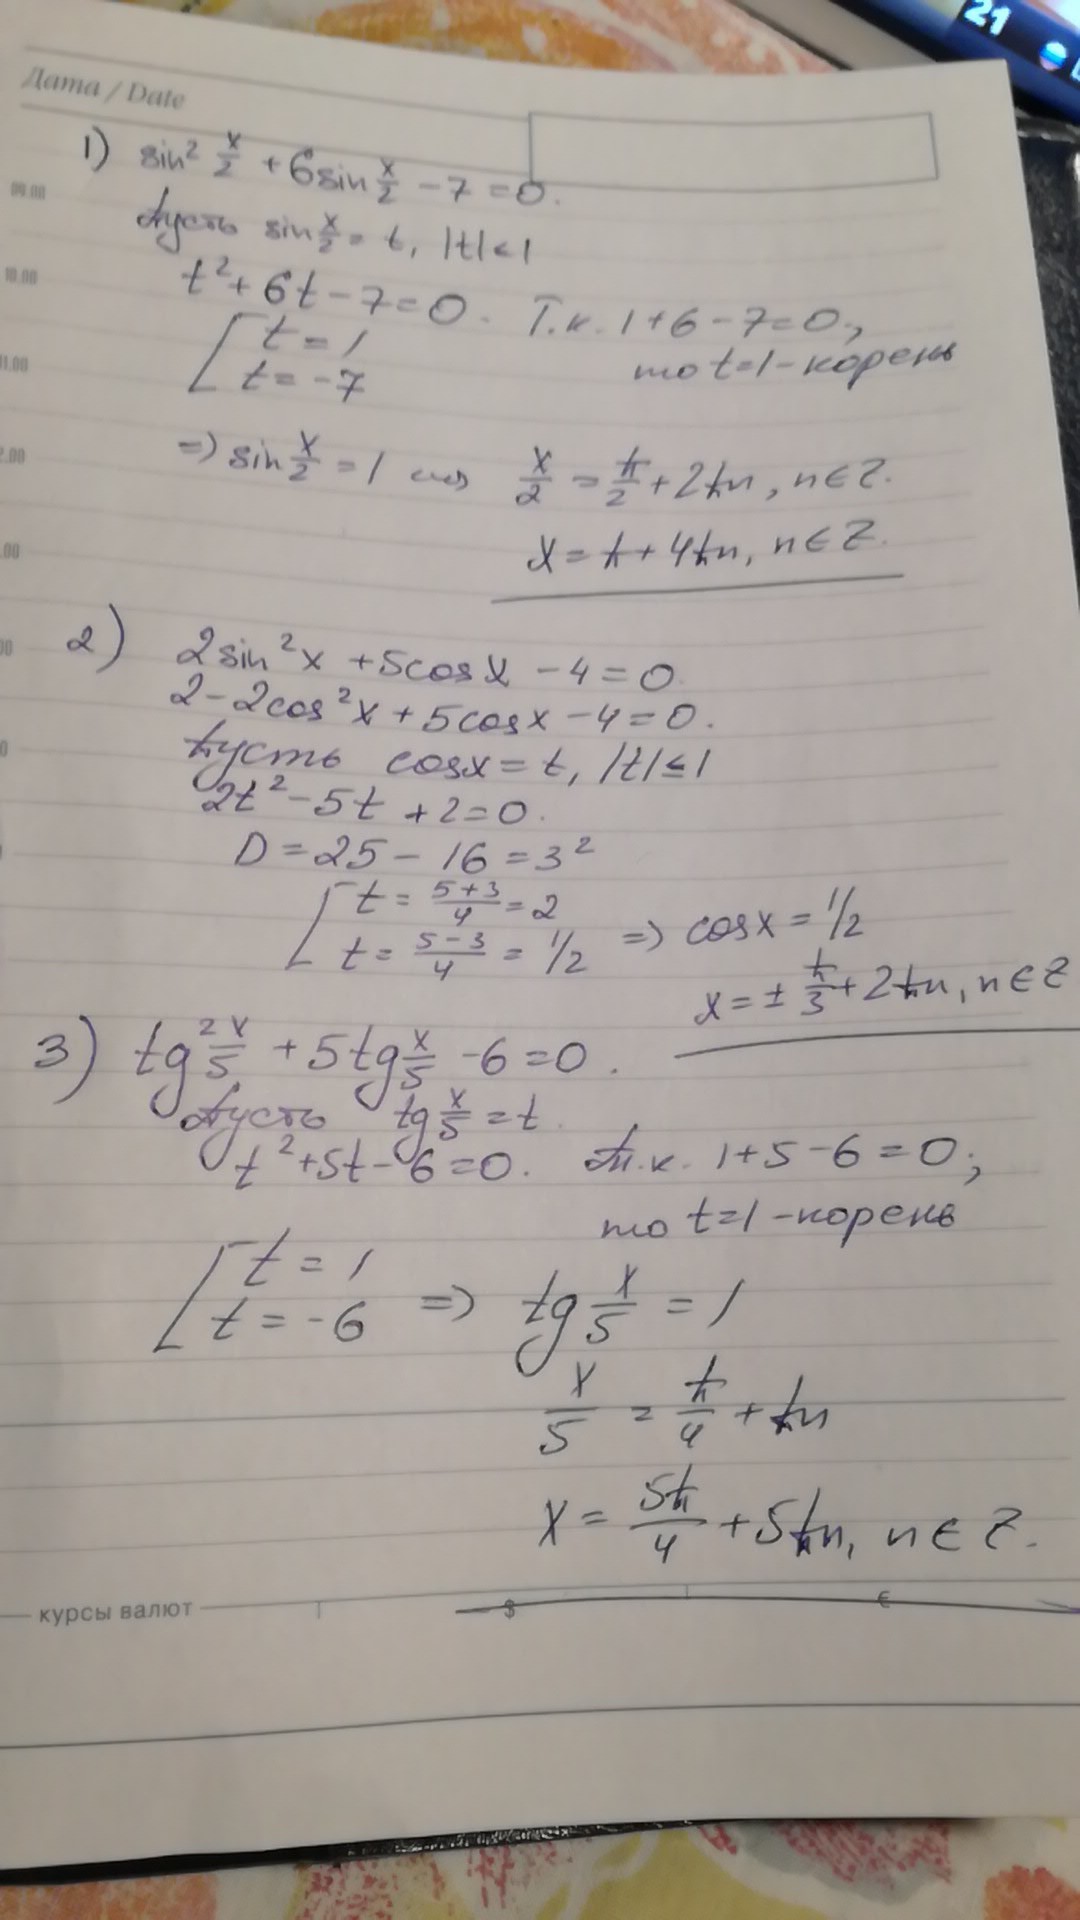 21
Дата / Date
1) sin² x/2 + 6sin x/2 - 7 = 0.
09.00
Пусть sin x/2 = t, |t| ≤ 1
10.00
t² + 6t - 7 = 0. Т.к. 1 + 6 - 7 = 0,
[ t = 1
то t=1 - корень
t = -7
⇒ sin x/2 = 1 ⇔ x/2 = π/2 + 2πn, n ∈ Z.
x = π + 4πn, n ∈ Z.
2) 2sin²x + 5cosx - 4 = 0.
2 - 2cos²x + 5cosx - 4 = 0.
Пусть cosx = t, |t| ≤ 1
2t² - 5t + 2 = 0.
D = 25 - 16 = 3²
[ t = (5+3)/4 = 2
t = (5-3)/4 = 1/2 ⇒ cosx = 1/2
x = ± π/3 + 2πn, n ∈ Z
3) tg² x/5 + 5tg x/5 - 6 = 0.
Пусть tg x/5 = t
t² + 5t - 6 = 0. Т.к. 1 + 5 - 6 = 0;
то t=1 - корень
[ t = 1
t = -6 ⇒ tg x/5 = 1
x/5 = π/4 + πn
x = 5π/4 + 5πn, n ∈ Z.
курсы валют $ €